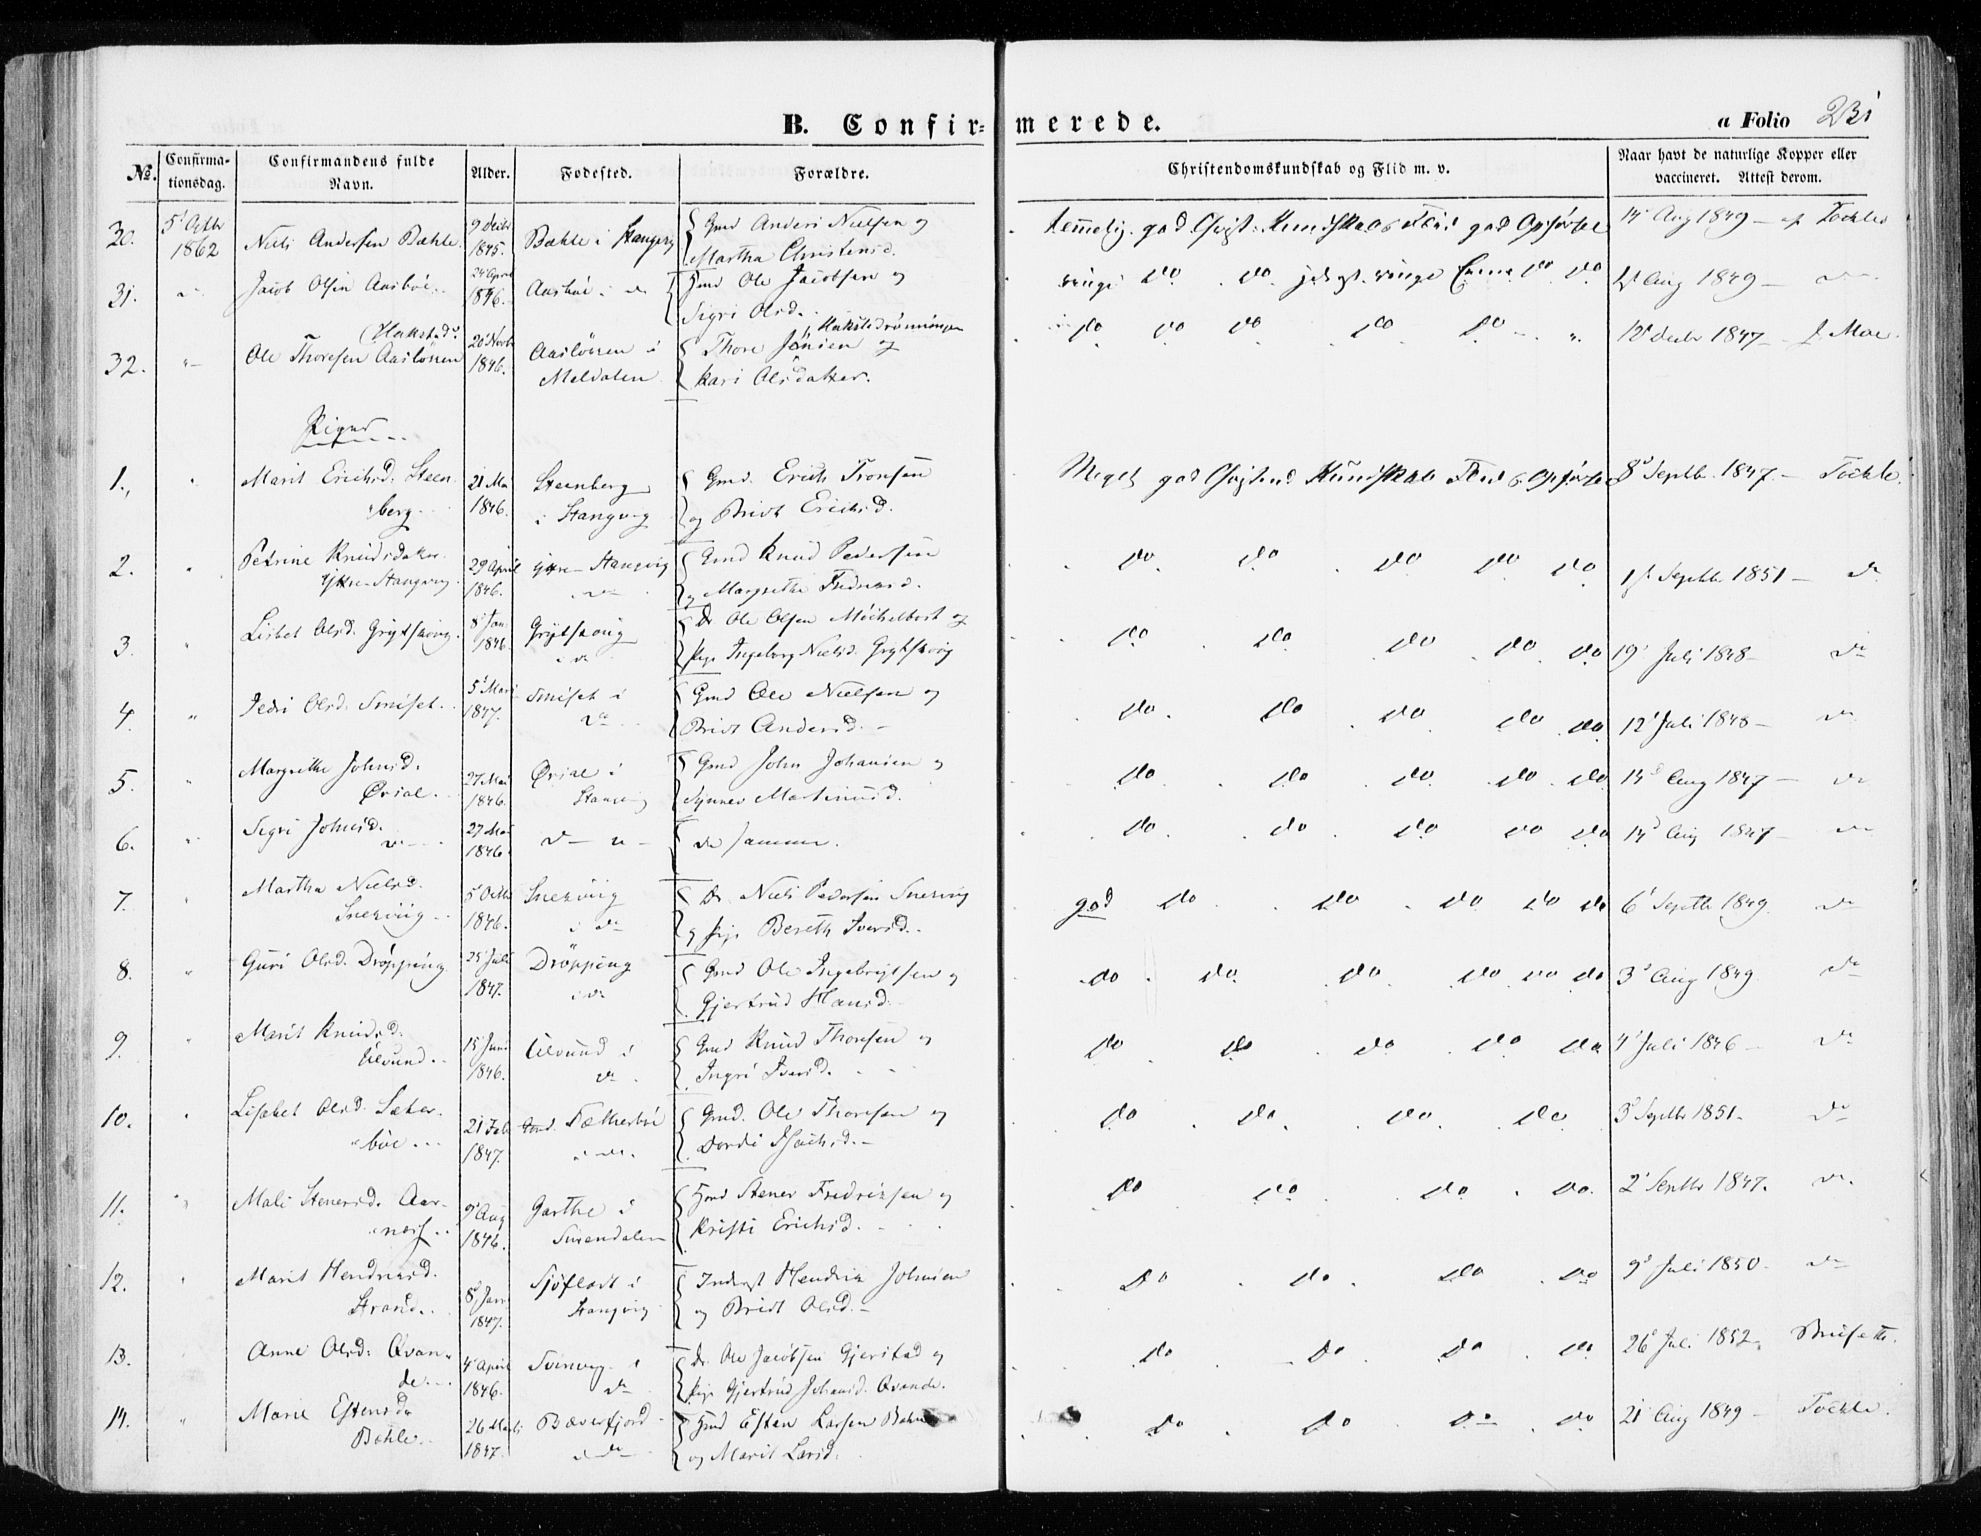 B. Confir= merede.
a Folio 231
No. Confirma-tionsdag. Confirmandens fulde Navn. Alder. Fødested. Forældre. Christendomskundskab og Flid m. v. Naar havt de naturlige Kopper eller vaccineret. Attest derom.
30. 5' Octb 1862 Niels Andersen Bæhle 9 Decbr 1845. Bæhle i Stangvig Gmd Anders Nielsen og Martha Christensd. temelig god Christ. Kundskab Flid god Opførsel 14 Aug 1849 - af Töchle
31. Jacob Olsen Aasbøe 24 April 1846. Aasbøe i do Hmd Ole Jacobsen og Sigri Olsd. ringe do do do do Aug 1849 - do
32. Ole Thoresen Aaslönen (Hakstad 20 Novbr 1846. Aaslönen i Meldalen Thore Jönsen og Kari Olsdatter. do do do do do 12 decbr 1847 - Moe
Piger
1. Marit Erichsd. Steenberg 21 Mai 1846. Steenberg i Stangvig Gmd. Erich Tronsen og Bridt Erichsd. Meget god Christend. Kundskab Flid & Opførsel 8' Septbr. 1847. - Töchle
2. Petrine Knudsdatter Yttre-Stangvig 29 April 1846. Yttre-Stangvig do Gmd Knud Pedersen og Margrethe do do do do do Septbr 1851 - do
3. Lisbet Olsd. Grytskoug 8' Jan 1846 Grytskoug i do Dr. Ole Olsen Michelbost og Pige Ingeborg Nielsd. Grytskoug do do do do do 19' Juli 1848 - do
4. Olsd. Smiset 5' Marts 1847. Smiset i do Gmd Ole Nielsen og Bridt Andersd. - do do do do do 12' Juli 1848 - do
5. Margrethe Johnsd. Ørsal 27 Mai 1846. Ørsal i Stangvig Gmd John Johansen og Synnev Martinusd. do do do do do 14' Aug 1847 - do
6. Sigri Johnsd. do 27 Mai 1846 do - do samme. do do do do do 14' Aug 1847 - do
7. Martha Nielsd. Snekvig 5' Octbr 1846. Snekvig i do Dr. Niels Pedersen Snekvig og Pige Bereth Iversd. god do do do do do 6' Septbr 1849. do
8. Guri Olsd. Dröpping 25' Juli 1847. Dröpping i do Gmd Ole Ingebrigtsen og Gjertrud Hansd. do do do do do do 3' Aug 1849. do
9. Marit Knudsd. Ulvund 15' Juni 1846. Ulvund i do Gmd Knud Thoresen og Ingri Iversd. do do do do do 4' Juli 1846 - do
10. Lisabet Olsd. Sæterbøe 21 Feb 1847. Sætherbøe i do. Gmd. Ole Thoresen og Dordi Isachsd. - do do do do 3' Septbr 1851. do
11. Mali Stenersd. Aarnæs 9' Aug 1846. Garthe i Surendalen Hmd Stener Fredriksen og Kristi Erichsd. do do do do. 2' Septbr 1847. do.
12. Marit Hendriksd. Strand. 8' Jan 1847. Sjøflodt i Stangvig Inderst Hendrik Johnsen og Bridt Olsd. - do do do do 9' Juli 1850. do
13. Anne Olsd. Qvande 4' April 1846. Svinvig i do Dr. Ole Jacobsen Gjerstad og Pige Gjertrud Johansd. Qvande. do do do do 26' Juli 1852.
14. Marie Estensdr Bæhle 26 Marts 1847. Bæverfjord i do Hmd Esten Larsen Bæhle og Marit Larsd. do do do do 21 Aug 1849 - Töchle.